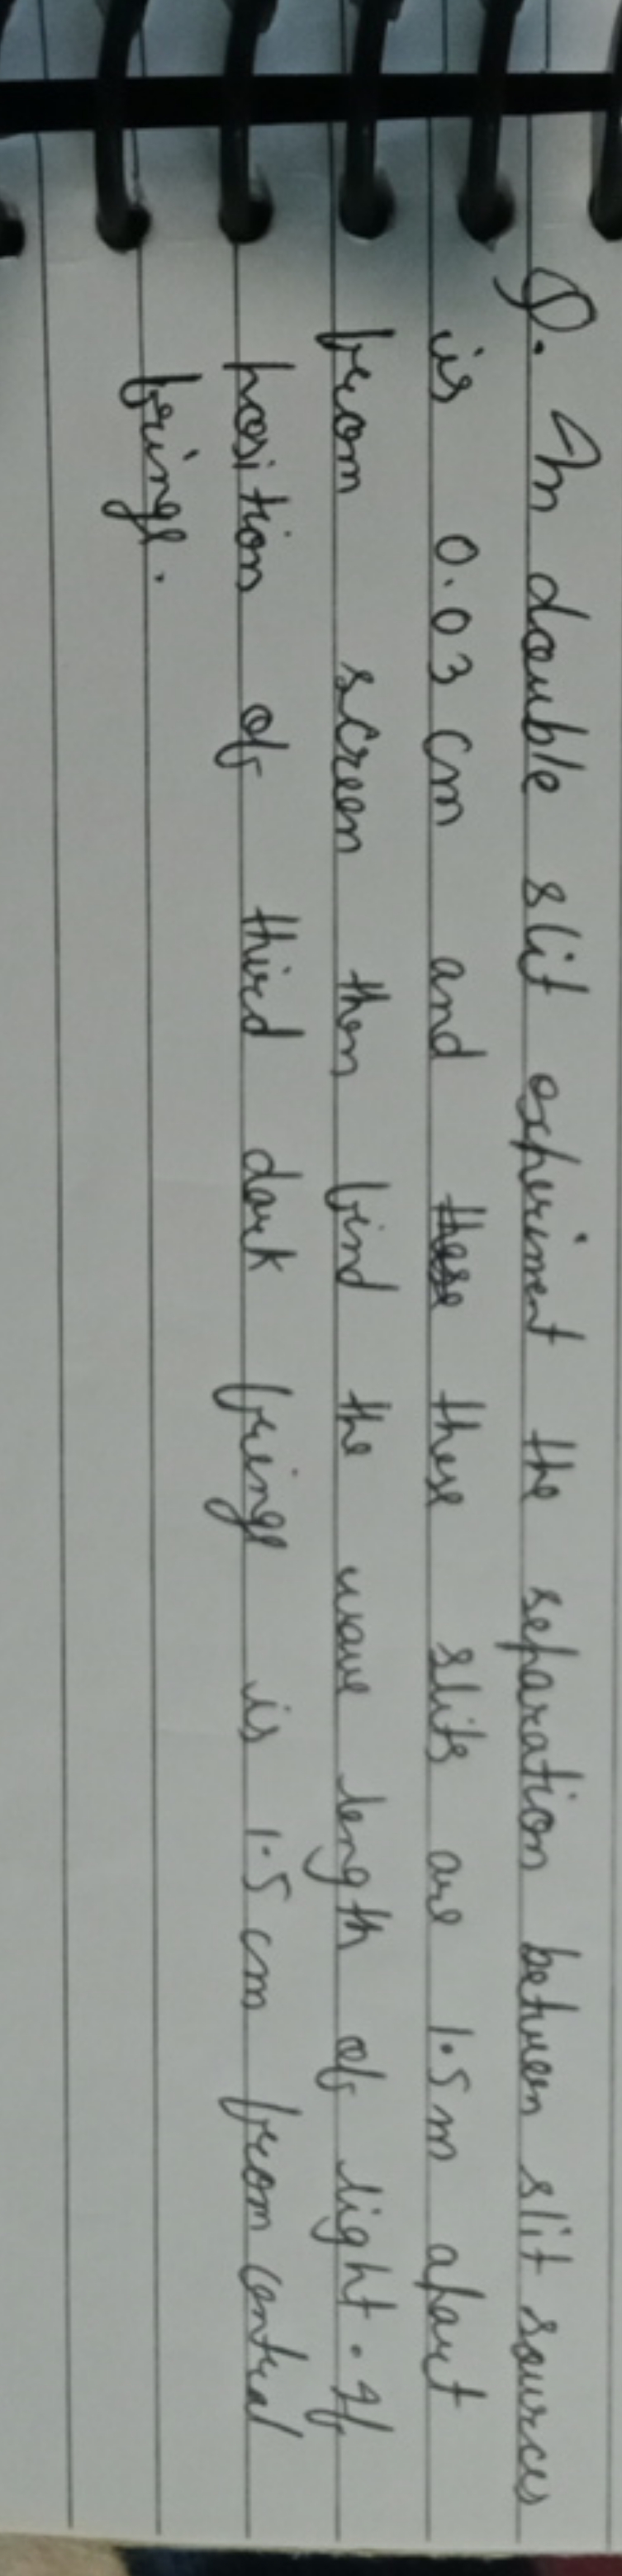 Q. In double slit experiment the separation between slit sources
is 0.03 cm and these these slits are 1.5 m apart
from screen then find the wave length of light. If
position of third dark fringe is 1.5 cm from central
fringe.